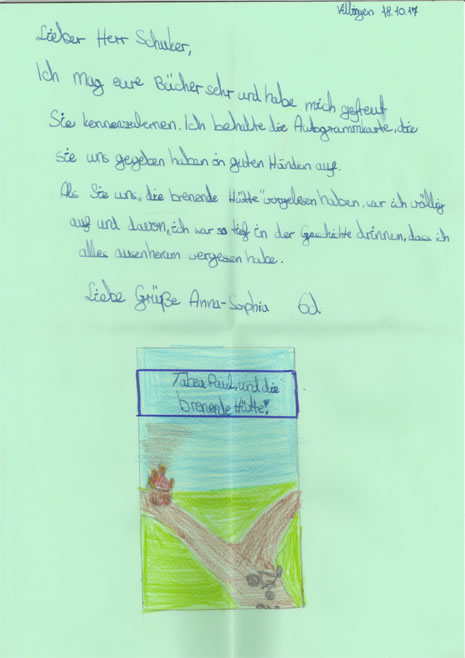 Villingen 18.10.17
Lieber Herr Schuker,
Ich mag eure Bücher sehr und habe mich gefreut
Sie kennenzulernen. Ich behalte die Autogrammkarte, die
sie uns gegeben haben in guten Händen auf.
Als Sie uns „die brenende Hütte" vorgelesen haben, war ich völlig
auf und davon, ich war so tief in der Geschichte drinnen, dass ich
alles ausenherum vergesen habe.
Liebe Grüße Anna-Sophia 6d
Paul, und die
brenende Hütte!